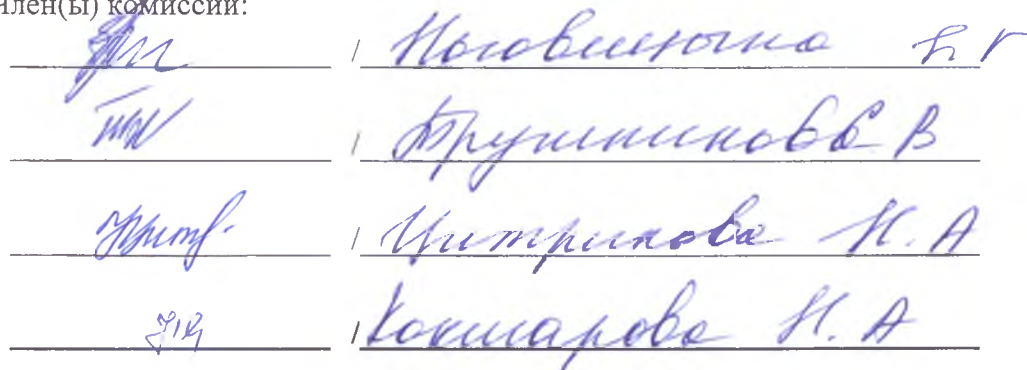 Член(ы) комиссии:
/ Ноговицына
/ Трушникова В
/ Цитрикова Н. А
/ Кокшарова Н. А